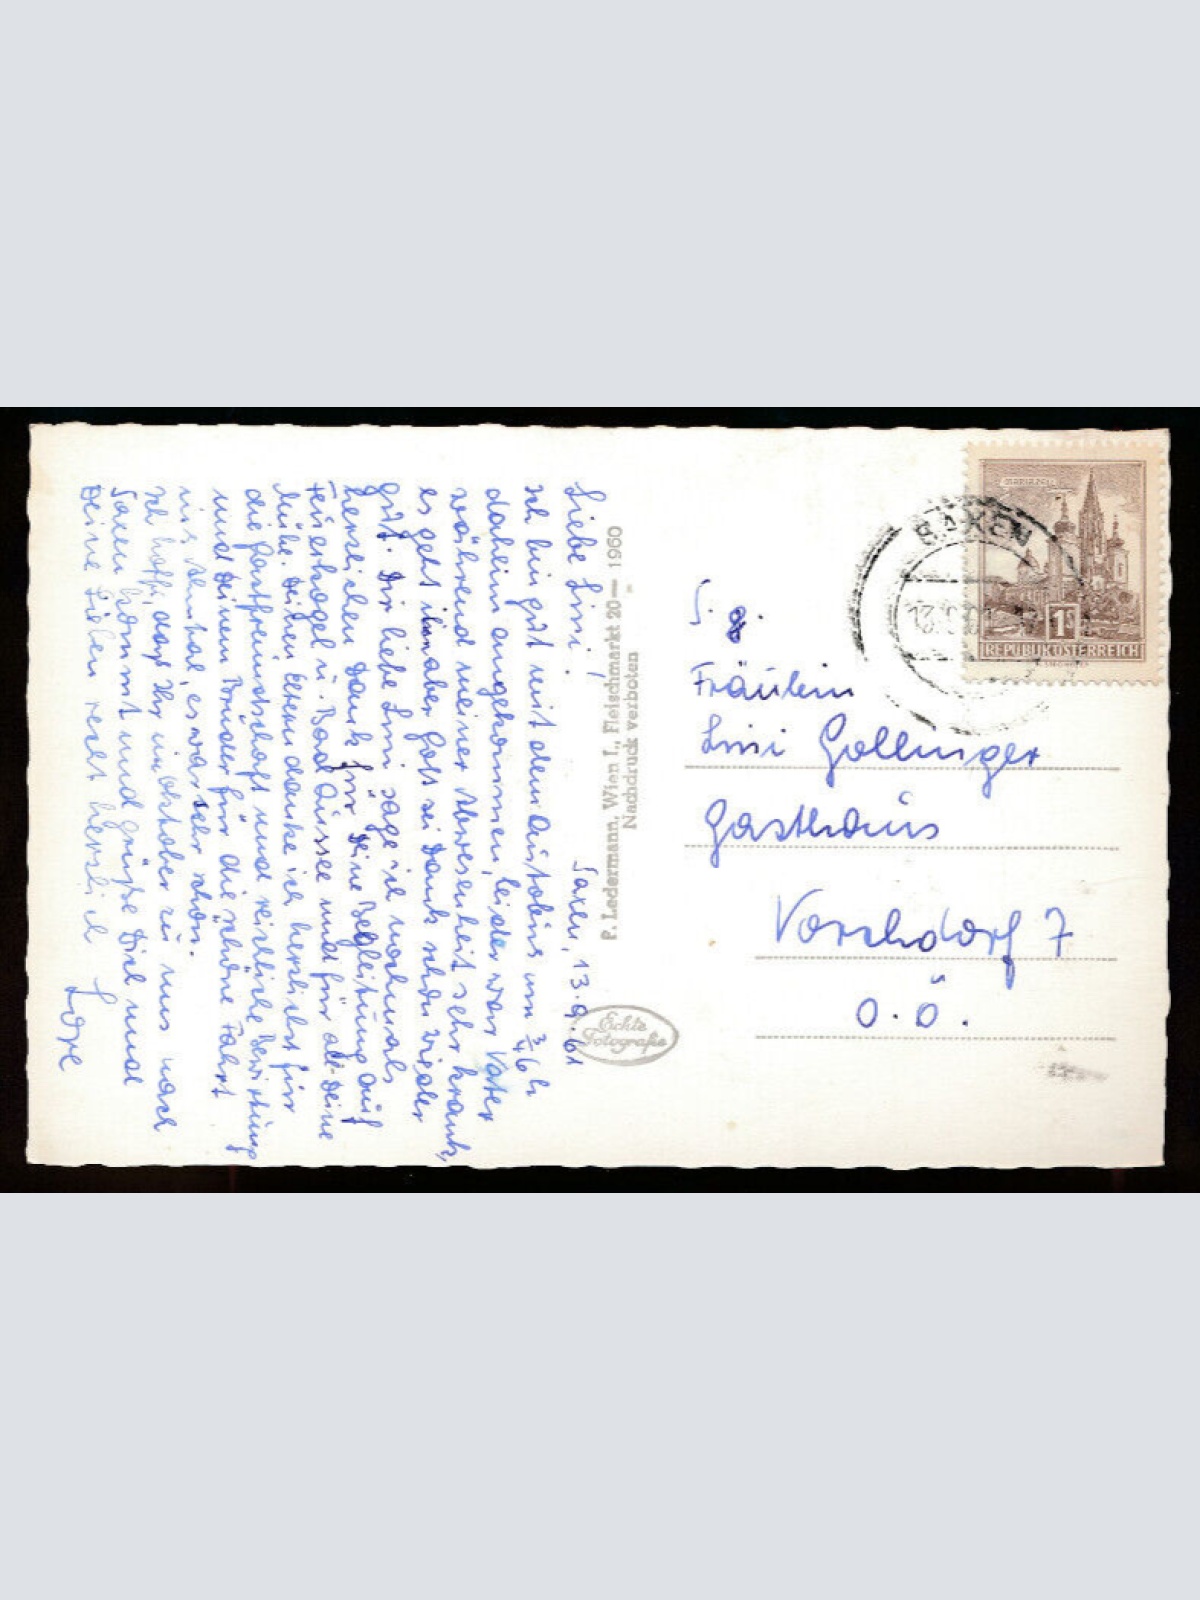 Saxen, 13.9.61
Liebe Lini!
Ich bin gut mit dem Autobus um ¾6h
daheim angekommen, leider war Vater
während meiner Abwesenheit sehr krank,
es geht ihm aber Gott sei Dank schon wieder
gut. Dir liebe Lini sage ich nochmals
herzlichen Dank für Deine Begleitung auf
Feuerkogel u. Bad Aussee und für all Deine
Mühe. Deinen Eltern danke ich herzlichst für
die Gastfreundschaft und reichliche Bewirtung
und Deinem Bruder für die schöne Fahrt
ins Almtal, es war sehr schön.
Ich hoffe, dass Ihr im Oktober zu uns nach
Saxen kommt und grüße Dich und
Deine Lieben recht herzlich
P. Ledermann, Wien I., Fleischmarkt 20 — 1960
Nachdruck verboten
Echte
Fotografie
MARIAZELL
SAXEN
1S
REPUBLIK ÖSTERREICH
S. g.
Fräulein
Lini Gollinger
Gasthaus
Vorchdorf 7
O.Ö.